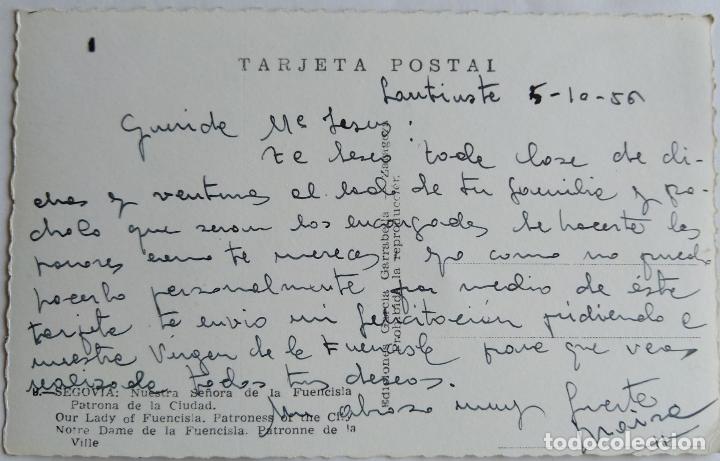 TARJETA POSTAL
Santiuste 5-10-56
Querida Mª Jesus:
te deseo toda clase de di-
chas y venturas al lado de tu familia y pa-
cholo que seran los encargados de hacerte los
honores como te mereces yo como no puedo
hacerlo personalmente por medio de éste
tarjeta te envio mi felicitación pidiendo a
nuestra Virgen de la Fuencisla para que veas
realizado todos tus deseos.
Un abrazo muy fuerte
9.—SEGOVIA: Nuestra Señora de la Fuencisla
Patrona de la Ciudad.
Our Lady of Fuencisla. Patroness of the City
Notre Dame de la Fuencisla. Patronne de la
Ville
Ediciones García Garrabella - Zaragoza
Prohibida la reproducción.
todocoleccion.net